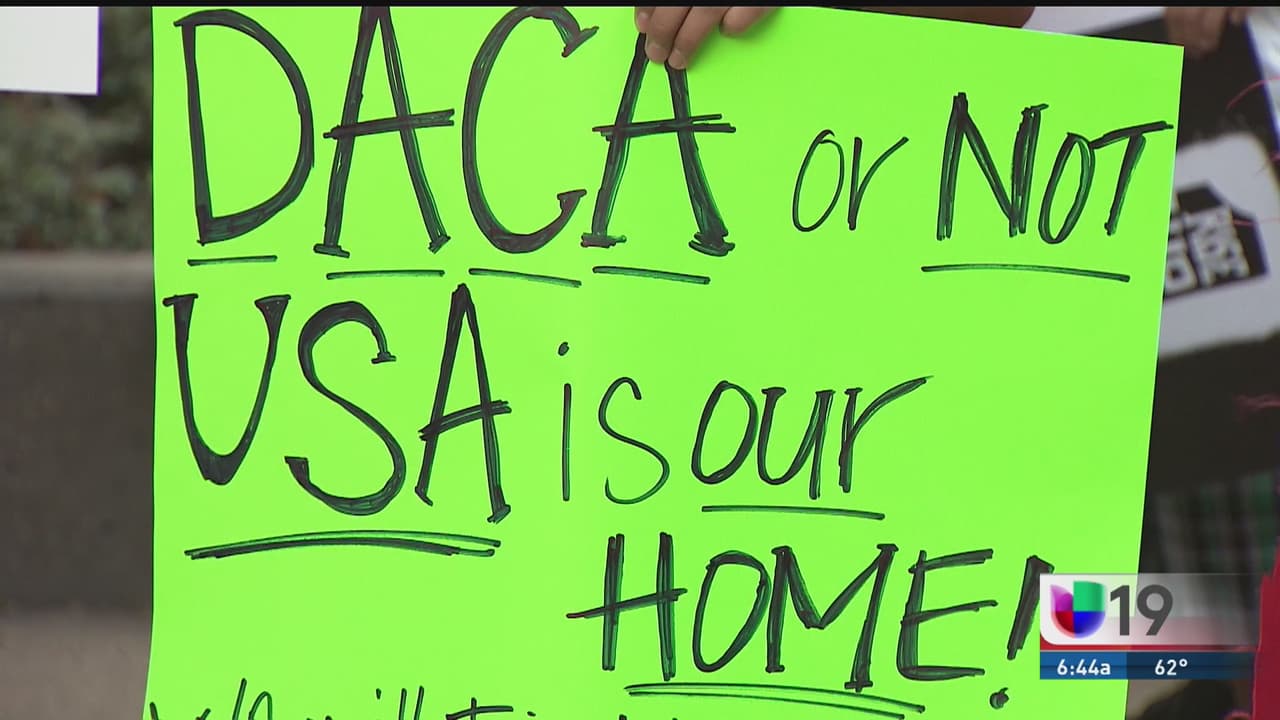 DACA or NOT
USA is our
HOME!
19
6:44a 62°